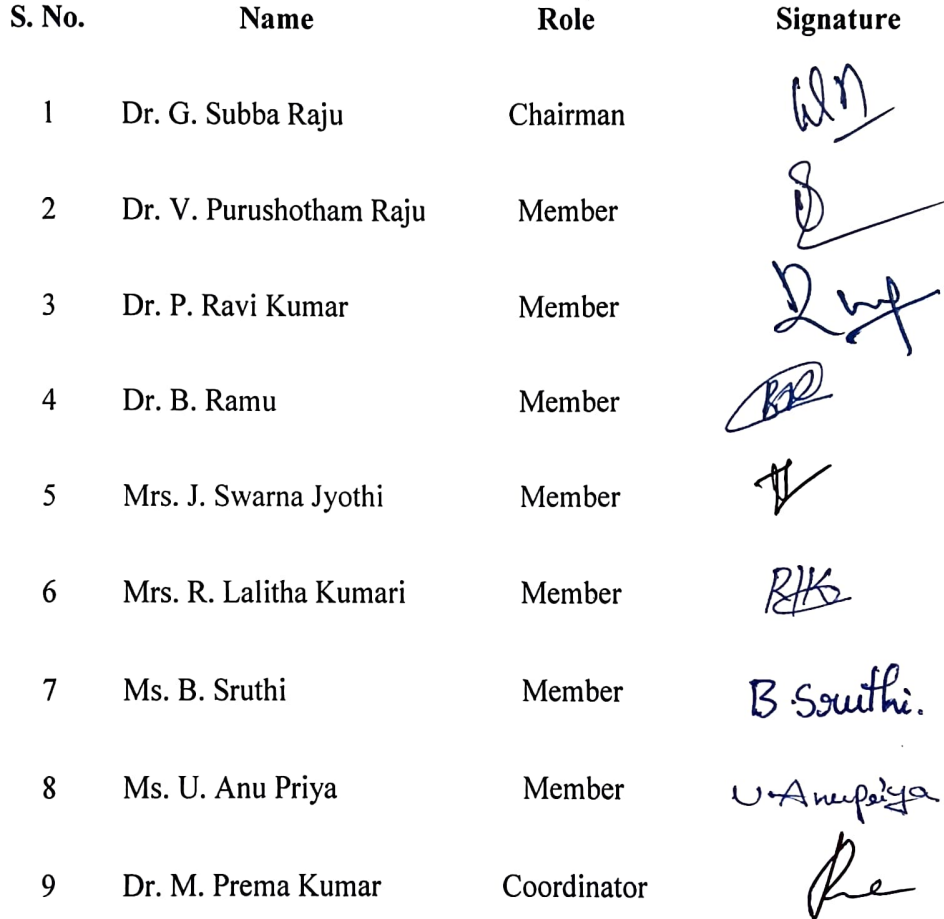 S. No. Name Role Signature
1 Dr. G. Subba Raju Chairman
2 Dr. V. Purushotham Raju Member
3 Dr. P. Ravi Kumar Member
4 Dr. B. Ramu Member
5 Mrs. J. Swarna Jyothi Member
6 Mrs. R. Lalitha Kumari Member
7 Ms. B. Sruthi Member B. Sruthi.
8 Ms. U. Anu Priya Member U. Anupriya
9 Dr. M. Prema Kumar Coordinator